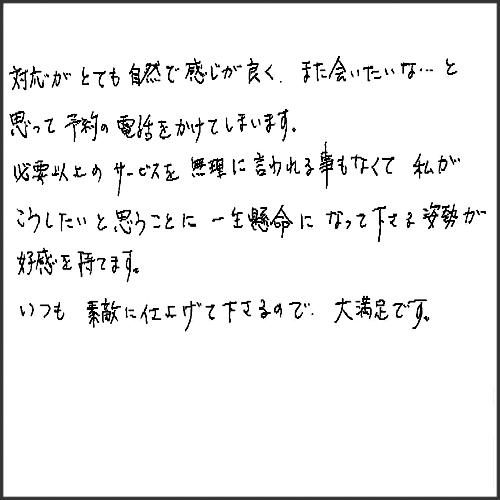 対応がとても自然で感じが良く、また会いたいな…と
思って予約の電話をかけてしまいます。
必要以上のサービスを無理に言われる事もなくて 私が
こうしたいと思うことに一生懸命になって下さる姿勢が
好感を持てます。
いつも 素敵に仕上げて下さるので、大満足です。